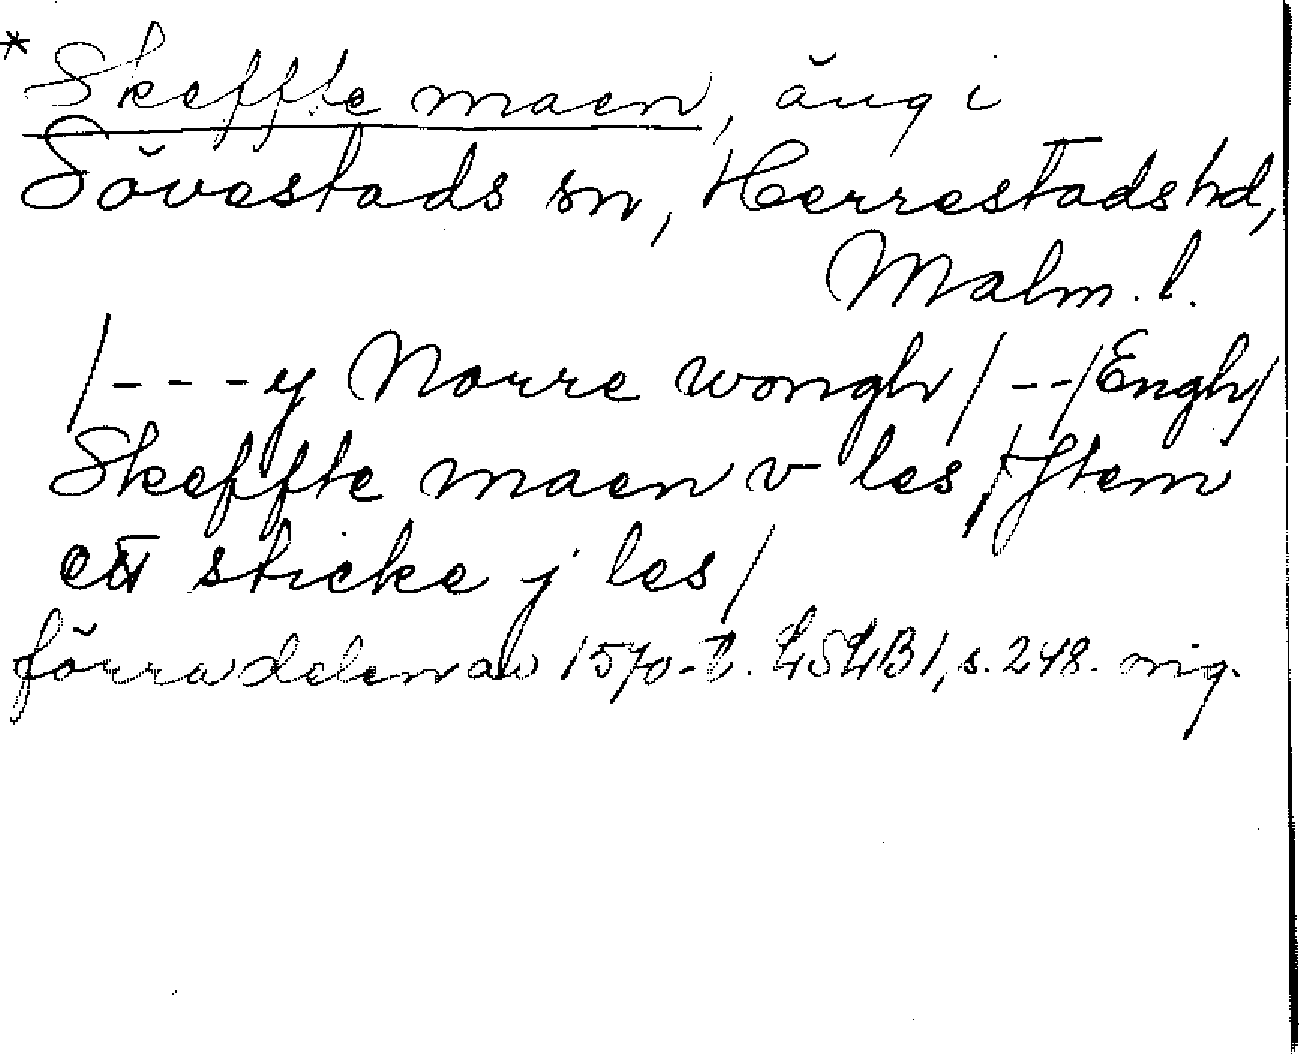 * Skeffte maen, äng i
Sövestads sn, Herrestads hd,
Malm. l.
/---y Norre wongh/--/Engh/
Skeffte maen v les / Jtem
ett sticke j les/
förra delen av 1570-t. LSLB1, s. 248. mig.